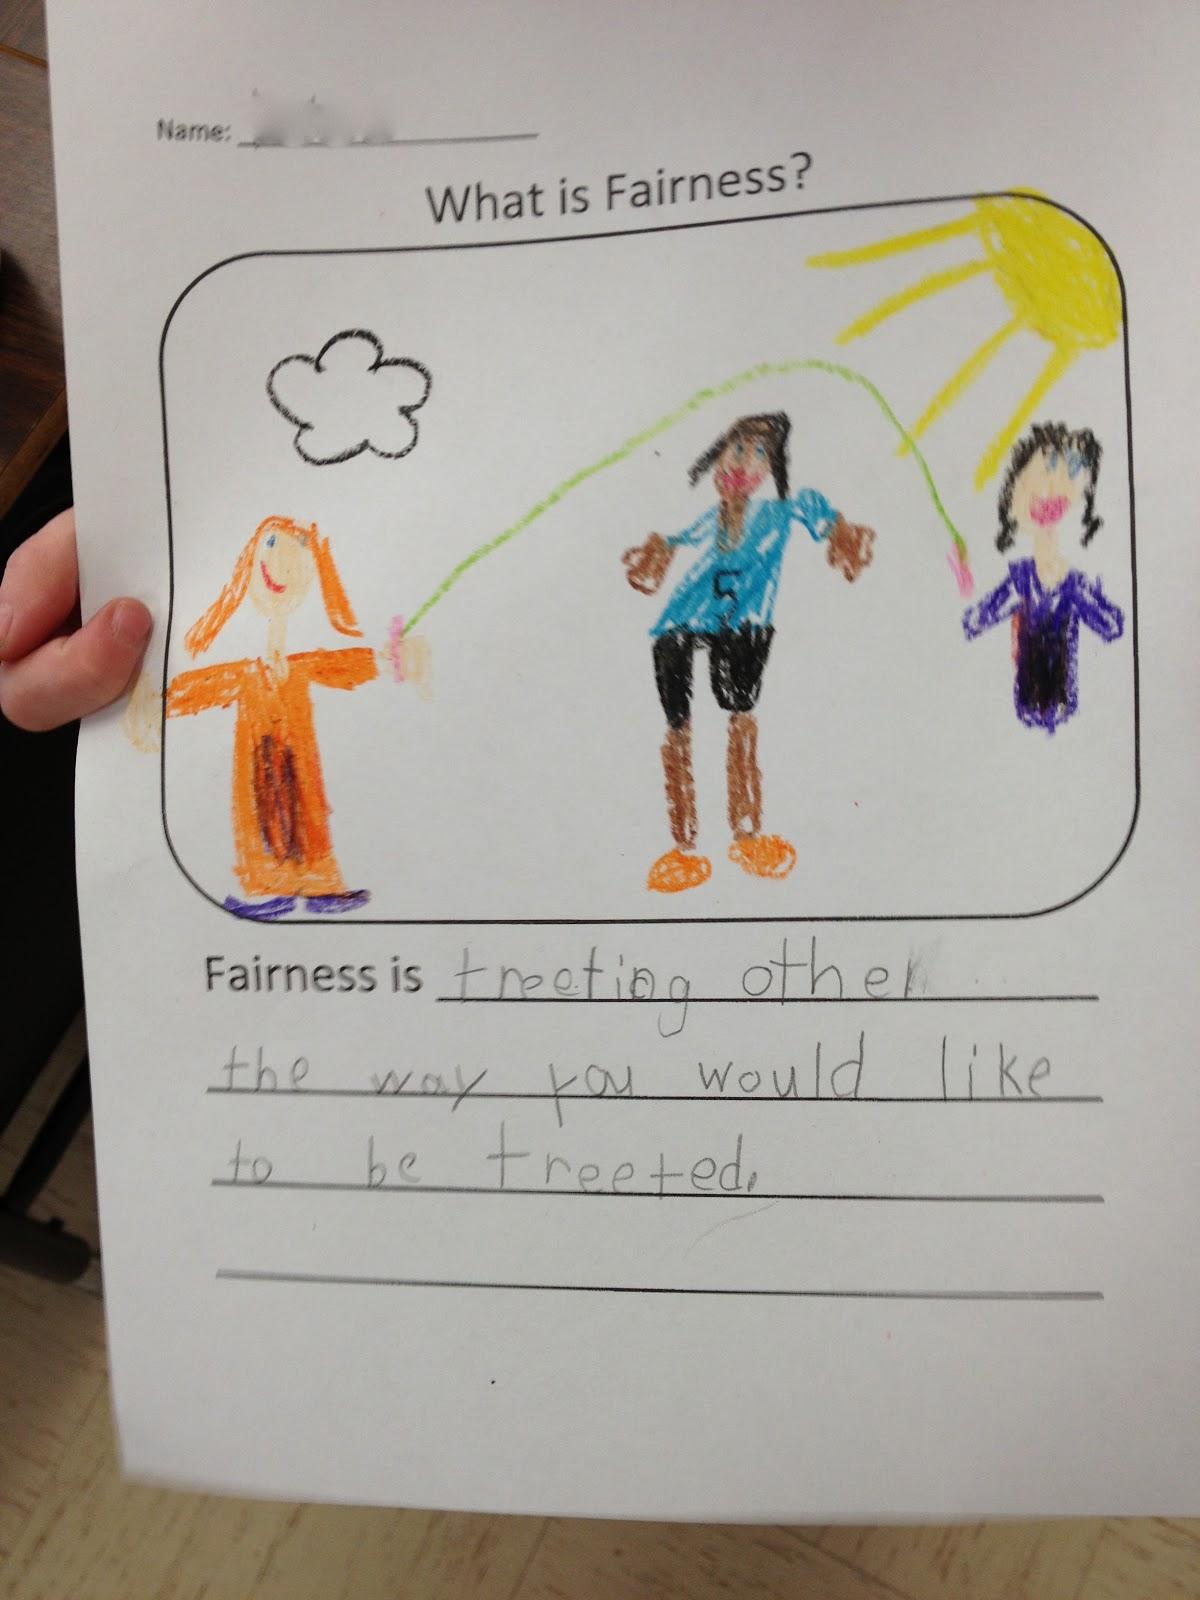 Name:
What is Fairness?
5
Fairness is treeting other
the way you would like
to be treeted.